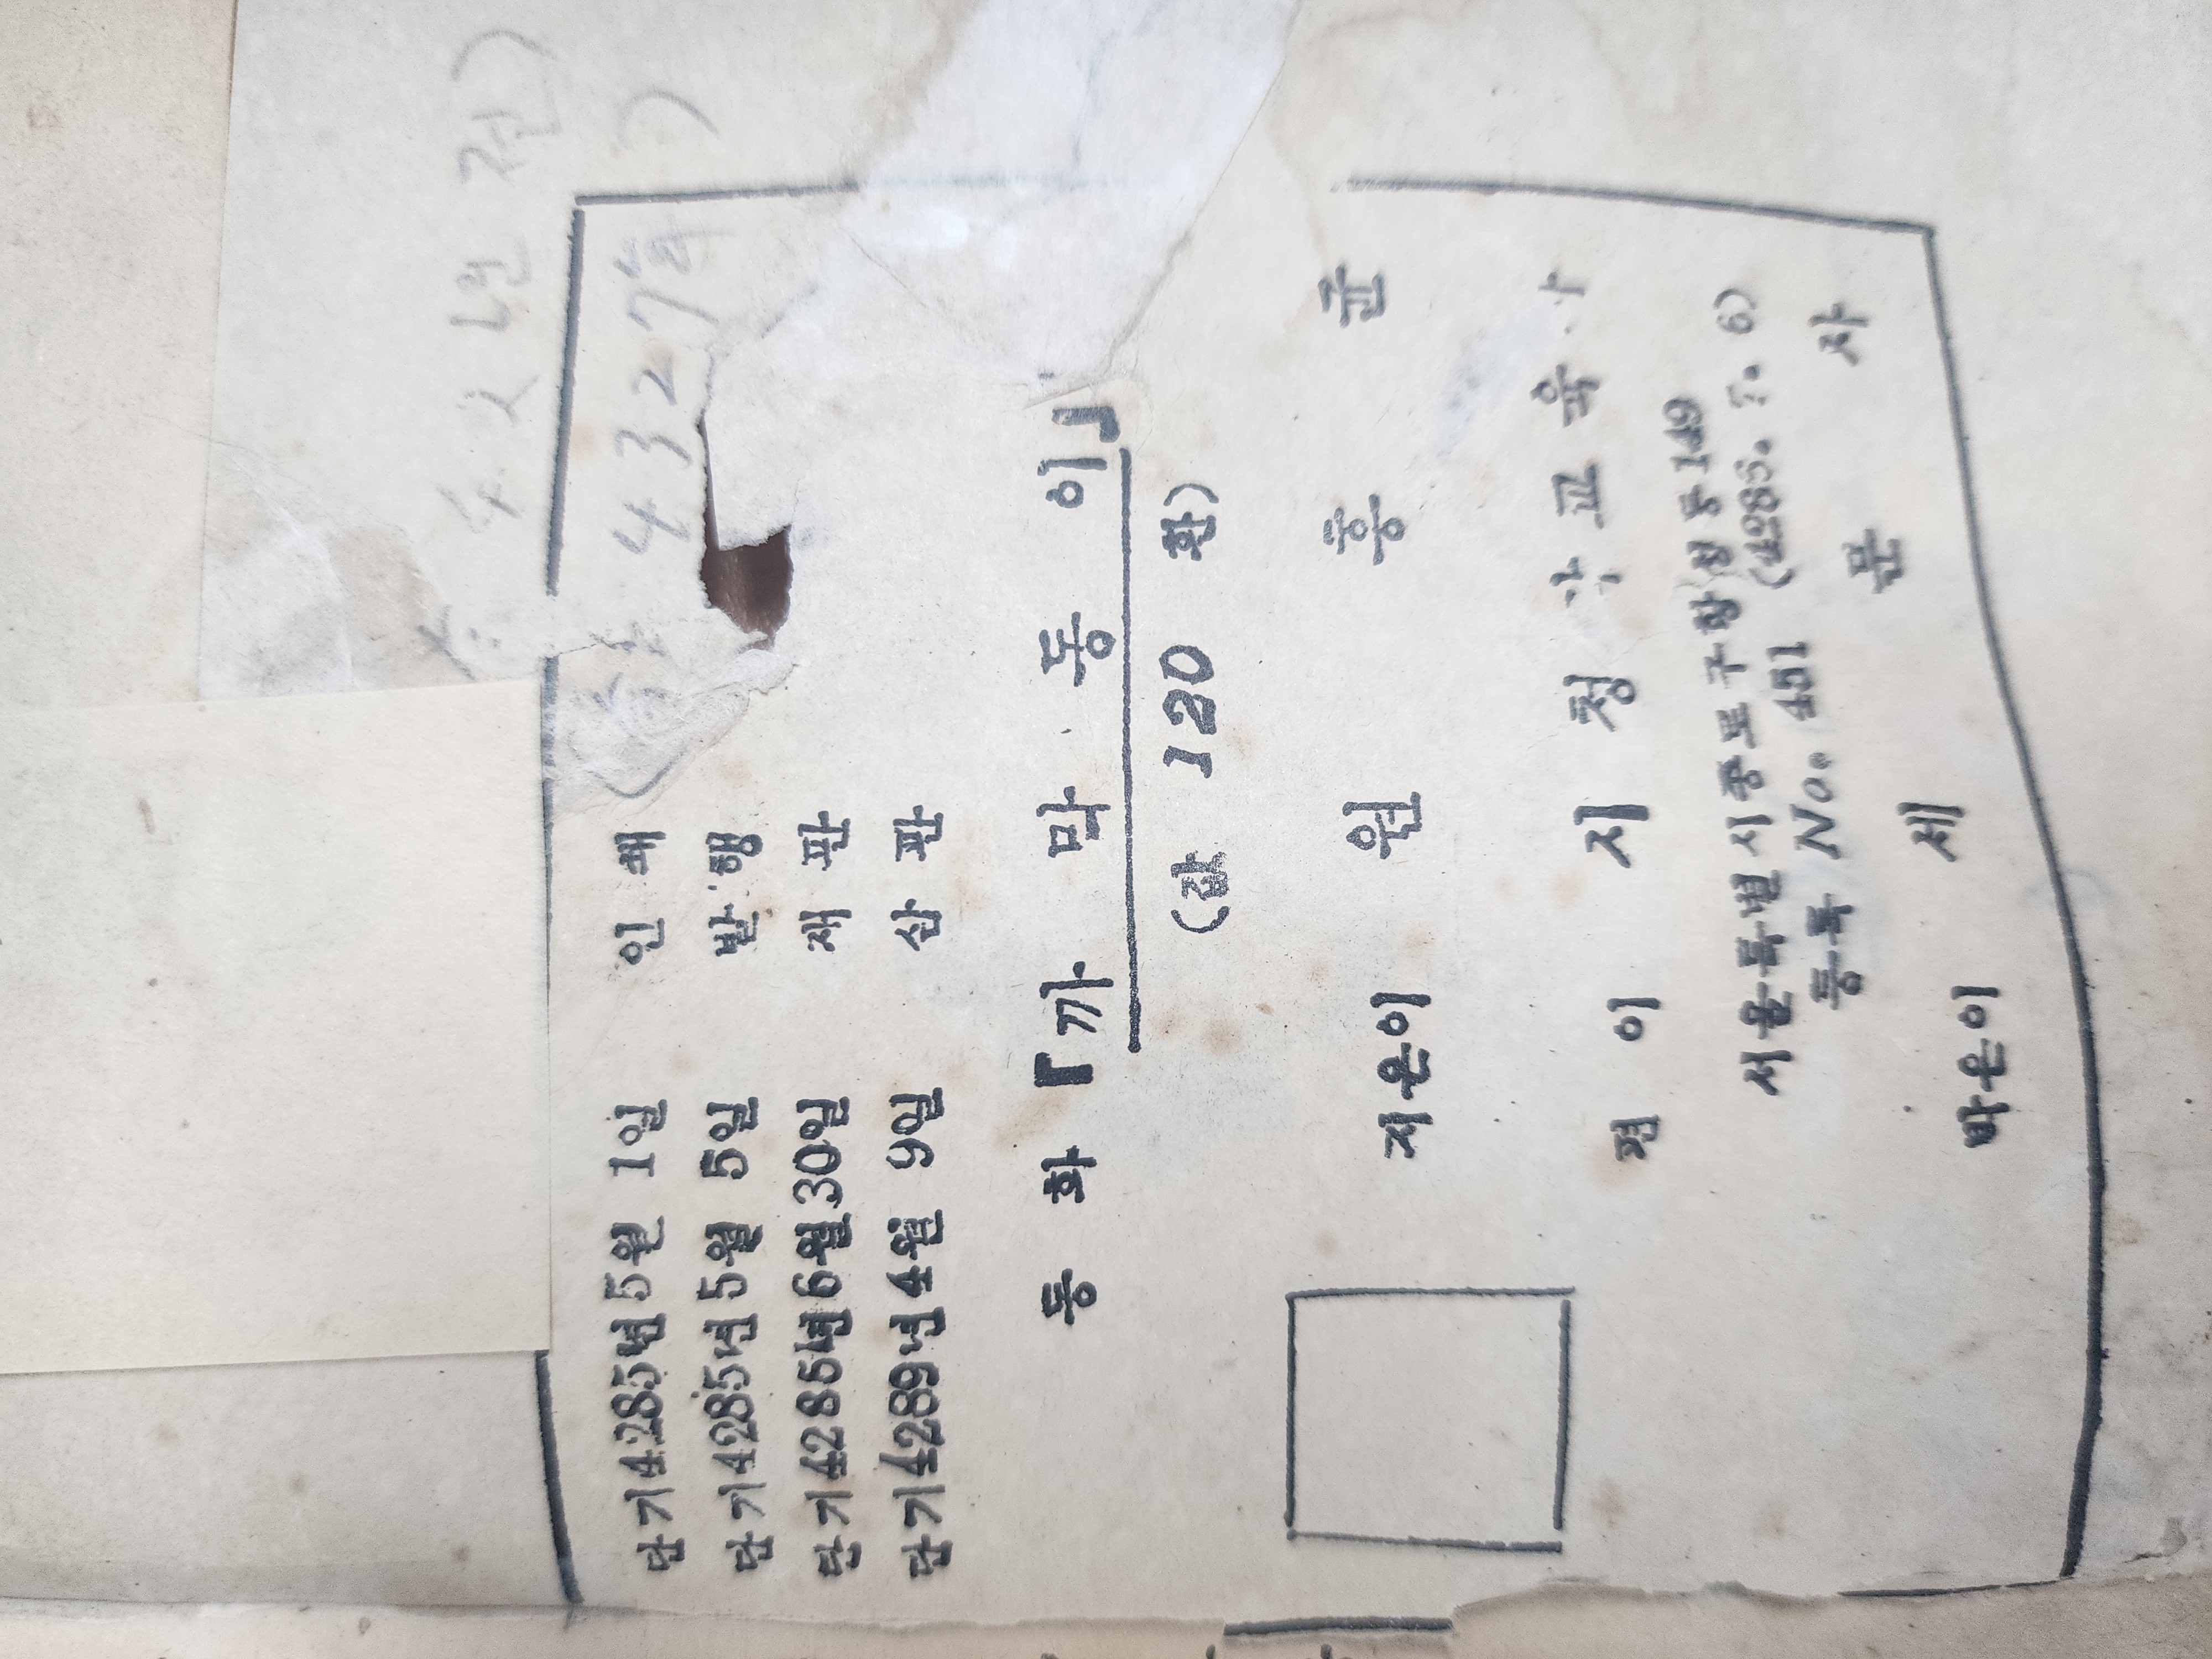 42년 전)
4327년 )
단기4285년 5월 1일 인쇄
단기4285년 5월 5일 발행
단기4285년 6월 30일 재판
단기4289년 4월 9일 삼판
동화 『까막동이』
(값 120 환)
지은이 원흥균
펴이 시청각교육사
서울특별시중로구황성동149
등록 No. 451 (4285. 7. 6)
박은이 세문사